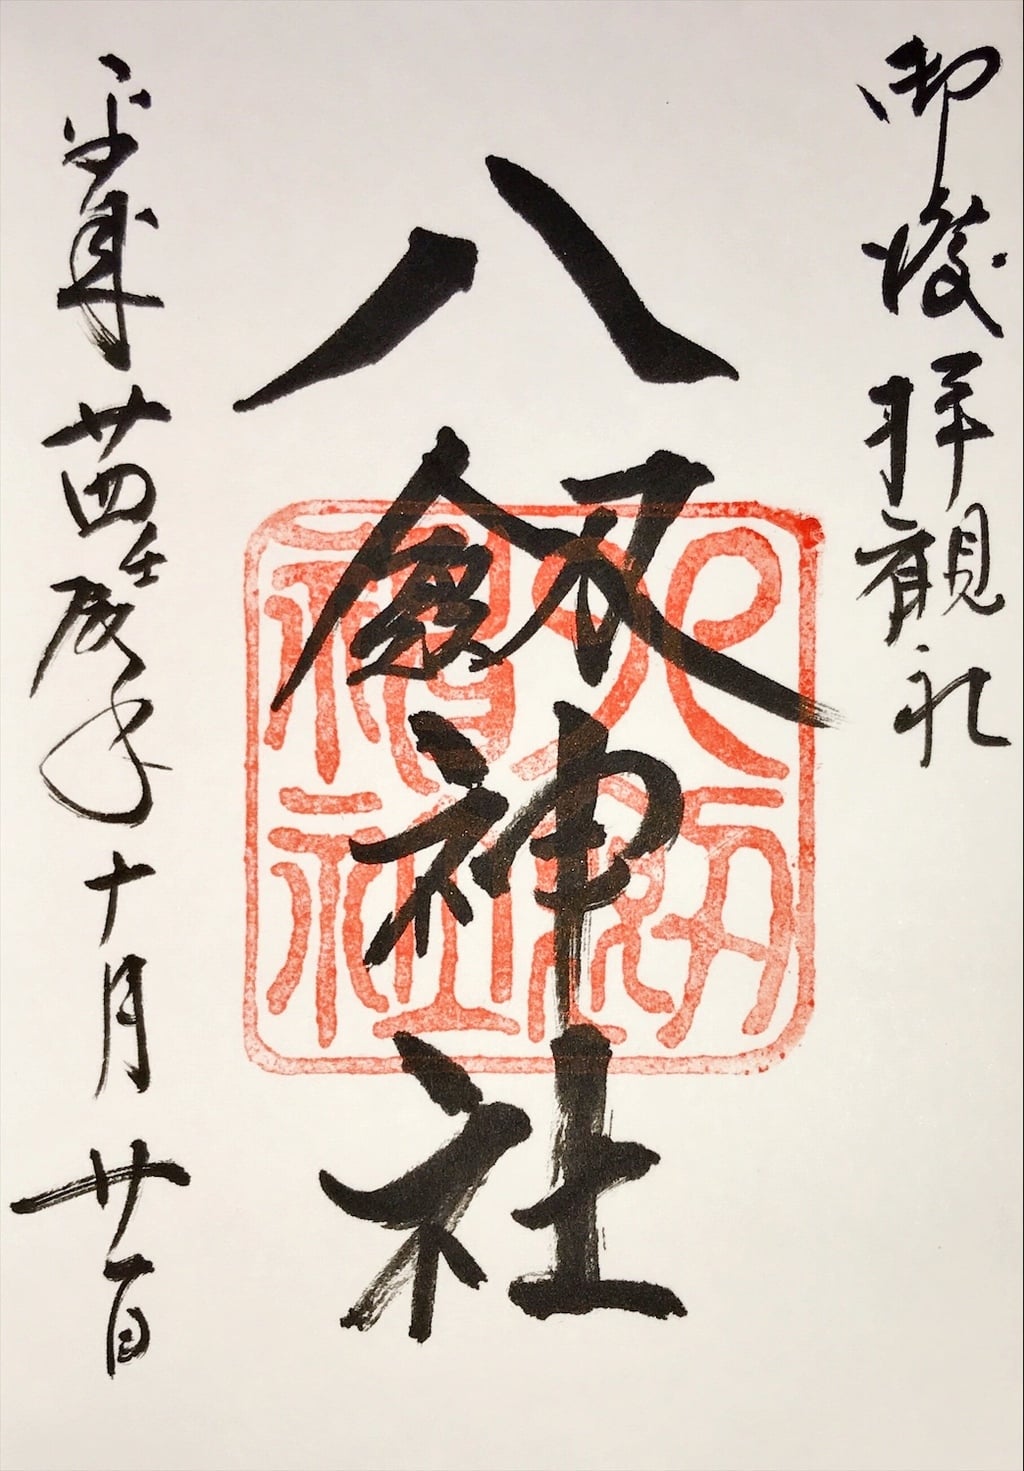 御渡拝観礼
八劔神社
八劔神社
平成廿四壬辰年十月廿一日